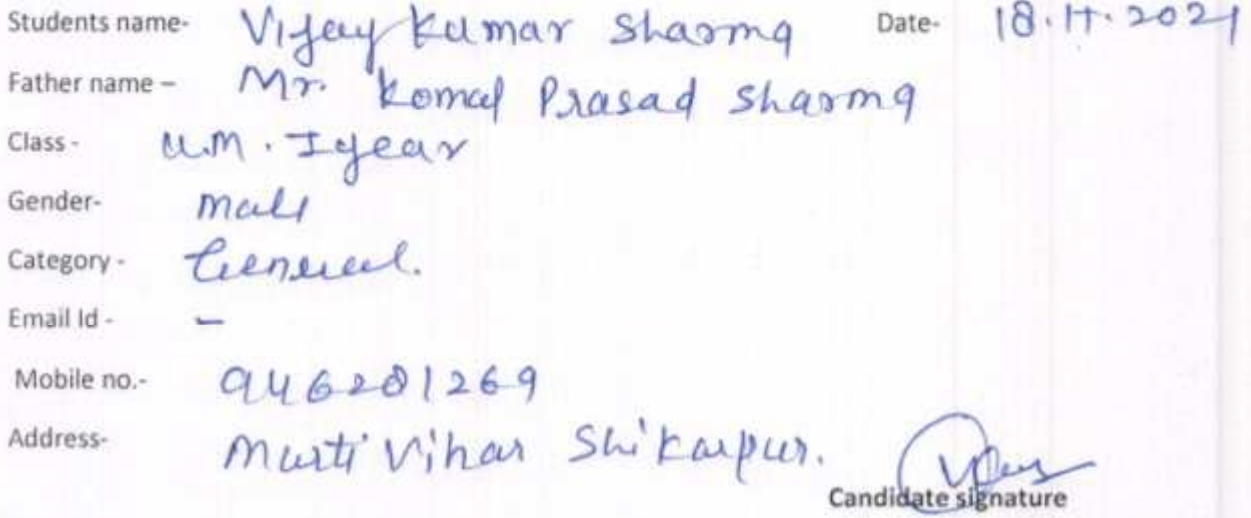 Students name- Vijay Kumar Sharma Date- 18.11.2021
Father name – Mr. Komal Prasad Sharma
Class - U.M. I year
Gender- Male
Category - General.
Email Id - -
Mobile no.- 946281269
Address- Murti Vihar Shikarpur.
Candidate signature